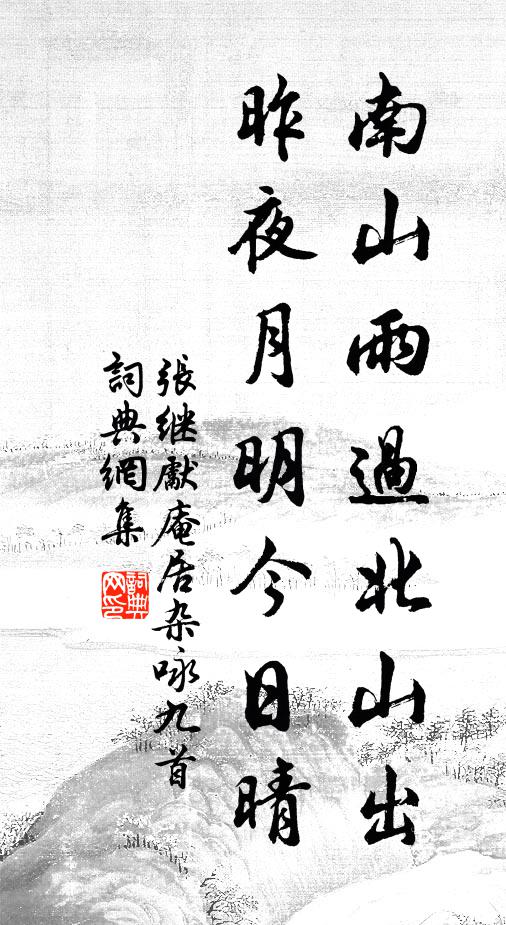 南山雨過北山出
昨夜月明今日晴
張继獻庵居杂咏九首
詞典網集
詞典網印